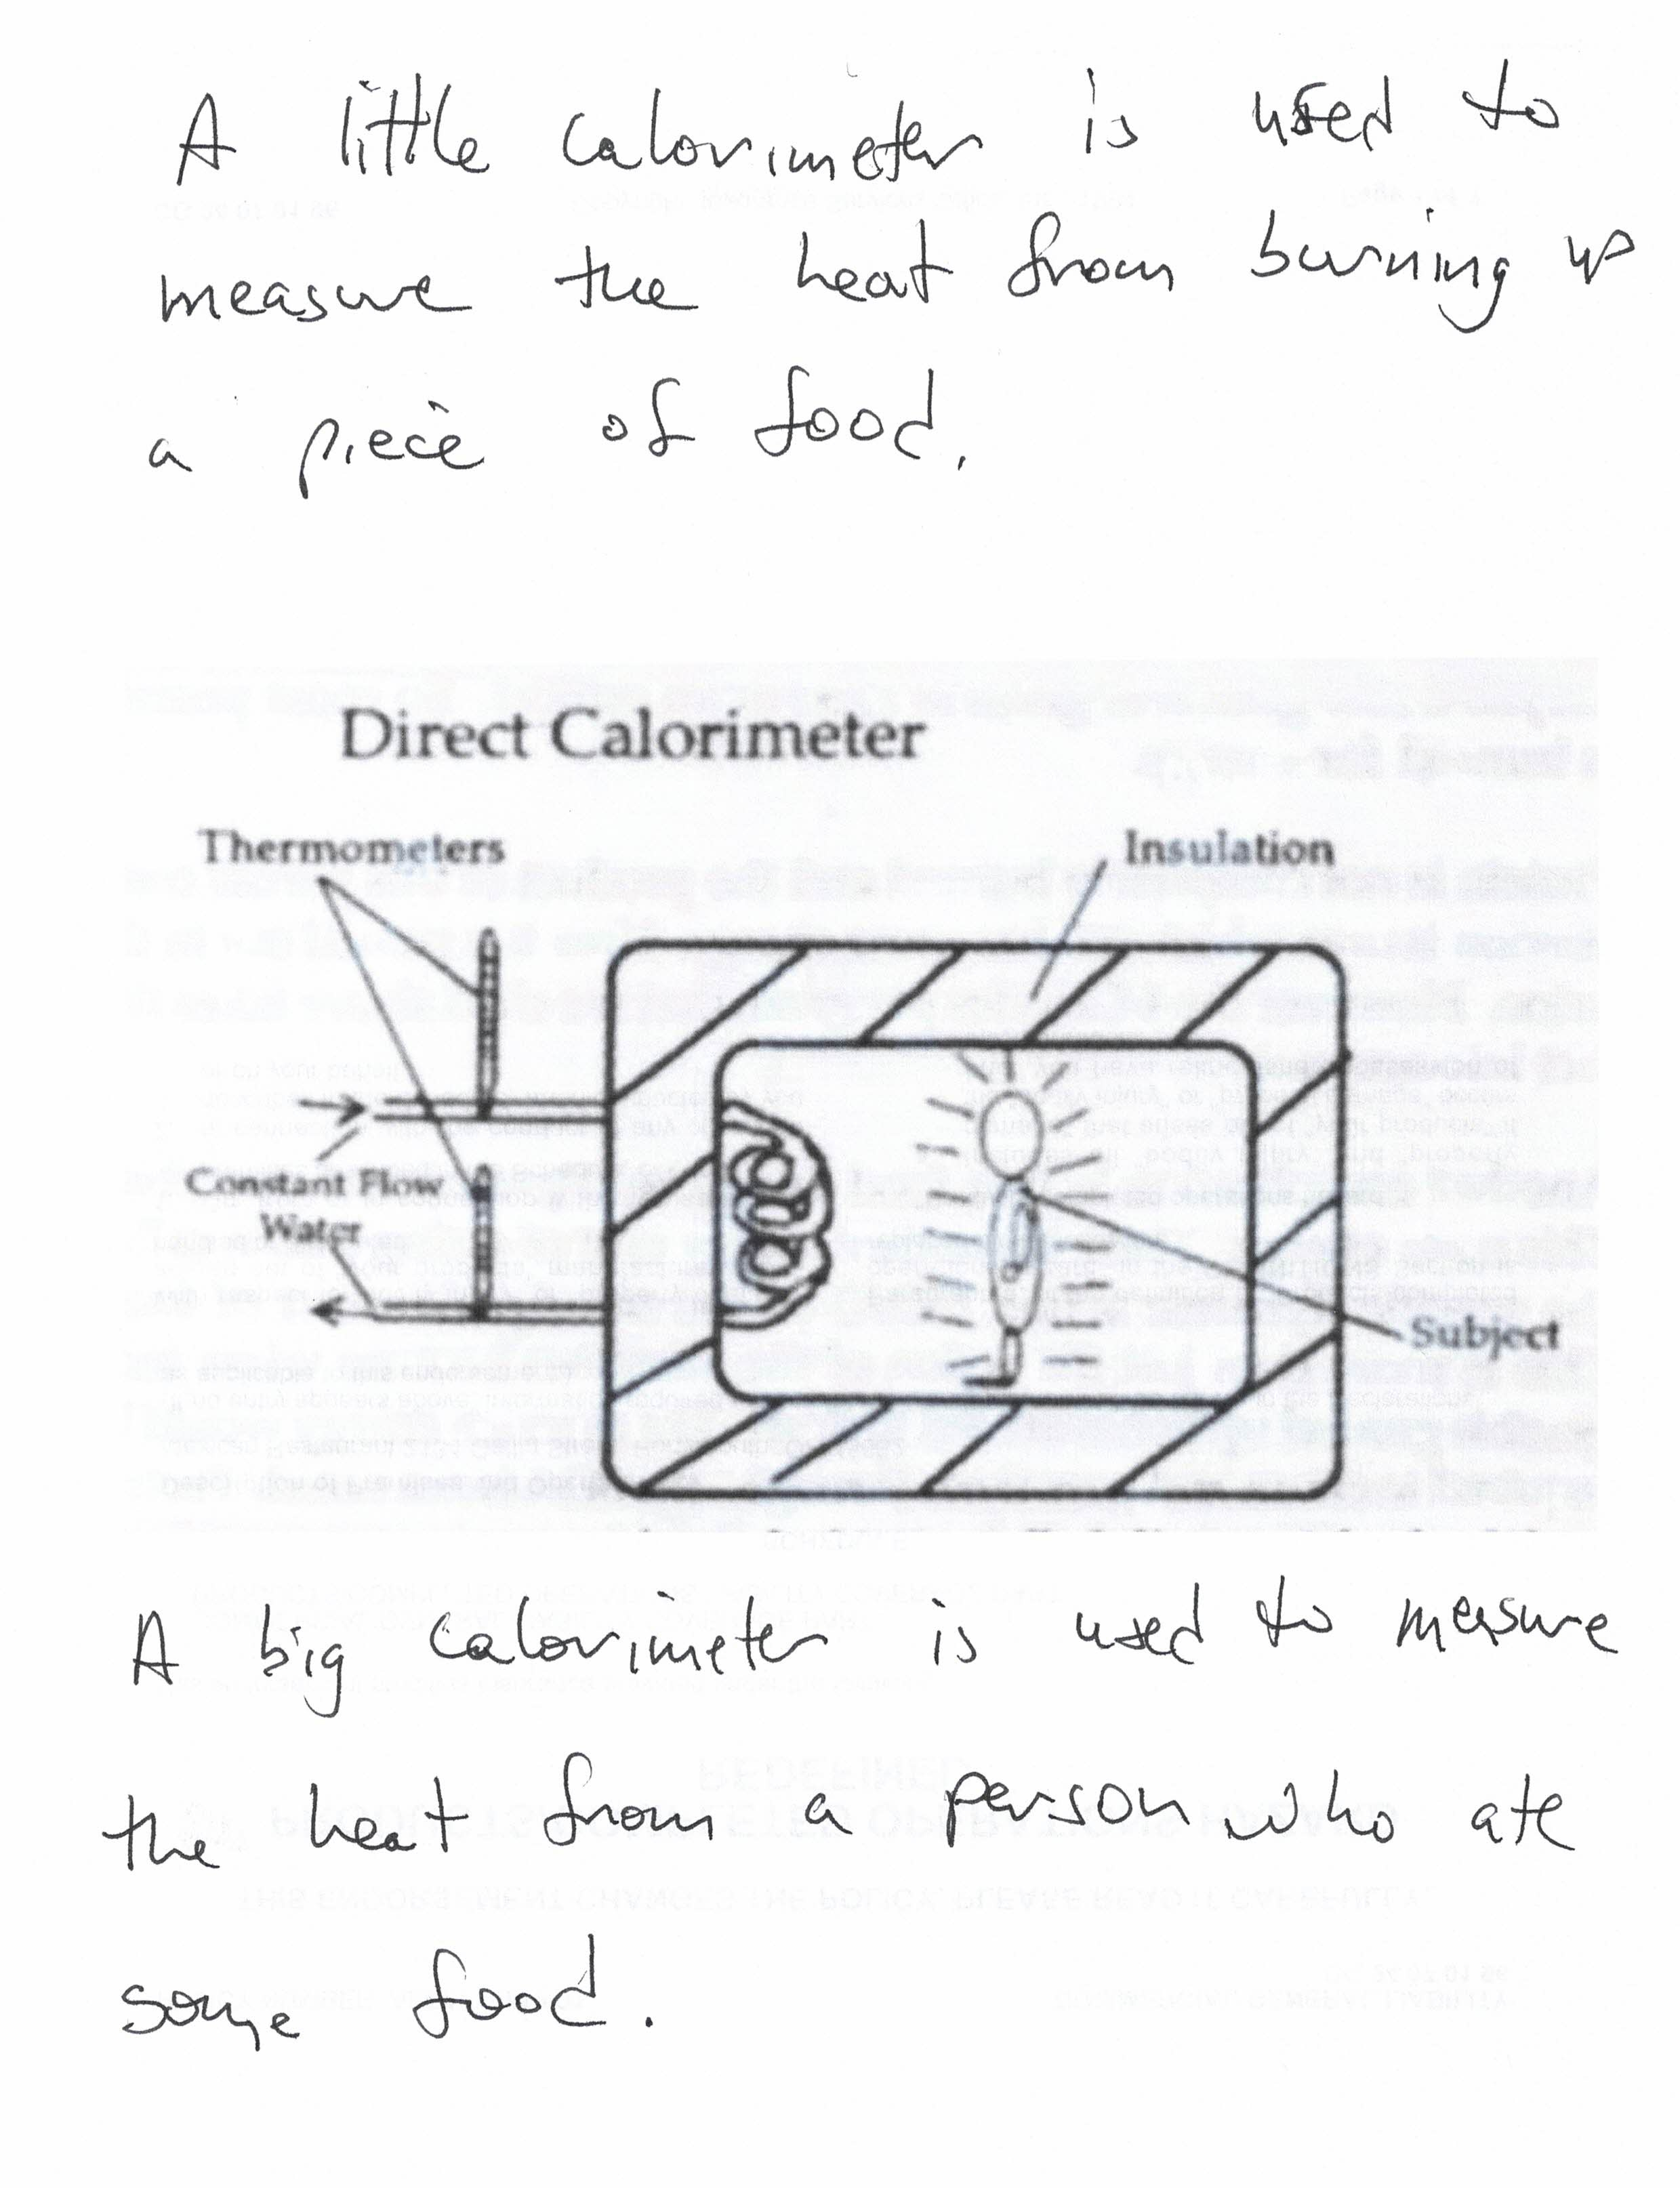 A little calorimeter is used to
measure the heat from burning up
a piece of food.
Direct Calorimeter
Thermometers
Insulation
Constant Flow
Water
Subject
A big calorimeter is used to measure
the heat from a person who ate
some food.